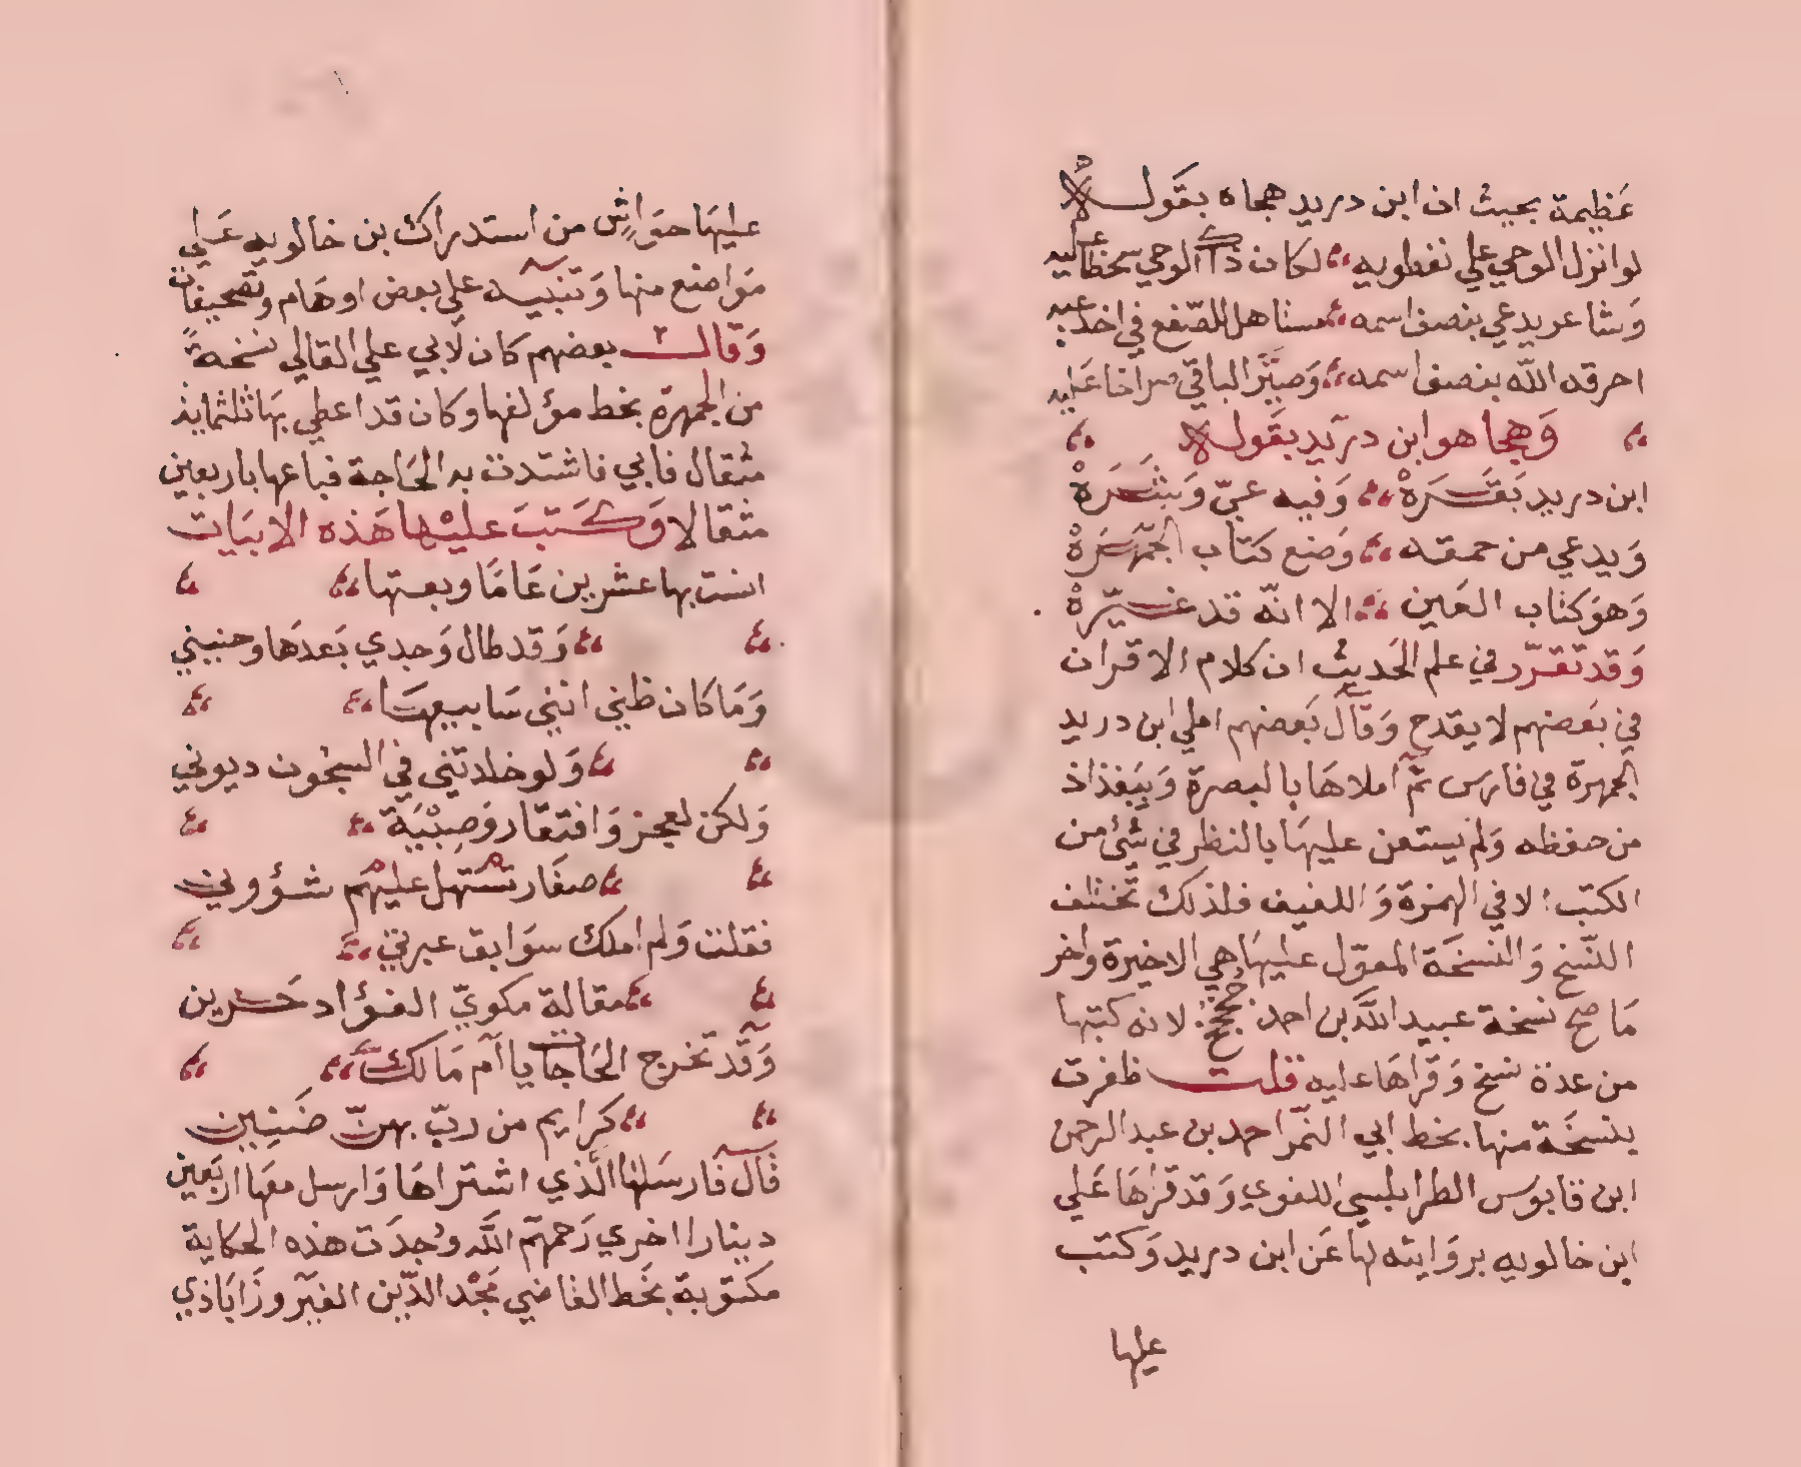 عَظِيمة بحيث ان ابن دريد هجاه بقَوله
لو انزل الوحي علي نفطويه لكان ذاك الوحي سخطا عليه
وَشاعر يدعي بنصف اسمه مستاهل للصّفع في اخدعيه
احرقه الله بنصف اسمه وَصيَّر الباقي صراخا عَليه
وَهجا هو ابن دريد بقَوله
ابن دريد بَقَرَهْ وَفيه عيّ وَشَرَهْ
وَيدعي من حمقه وَضع كتاب الجَمْهَرَهْ
وَهوَ كتاب العَين الا انّه قد غيّرهْ
وَقد تقرّر في علم الحَديث ان كلام الاقران
في بَعضهم لا يقدح وَقال بَعضهم املي ابن دريد
الجمهرة في فارس ثم املاهَا بالبصرة وَببَغذاذ
من حفظه وَلم يستعن عليهَا بالنظر في شئ من
الكتب الا في الهمزة وَاللفيف فلذلك تختلف
النّسخ وَالنسخَة المعوّل عليهَا هي الاخيرة واخر
مَا صح نسخة عبيد الله بن احمد جخجخ لانه كتبها
من عدة نسخ وَقراهَا عليه قلت ظفرت
بنسخَة منها بخط ابي النمر احمد بن عبد الرحمن
ابن قابوس الطرابلسي اللغوي وَقد قراهَا عَلي
ابن خالويه بروَايته لها عَن ابن دريد وَكتب
عليها
عليهَا حوَاشٍ من استدراك بن خالويه عَلي
مَوَاضع منها وَتنبيه علي بعض اوهَام وتصحيفات
وَقال بعضهم كان لابي علي القالي نسخةً
من الجمهرة بخط مؤلفها وكان قد اعطي بهَا ثلثماية
مثقال فابي فاشتدت به الحَاجة فباعها باربعين
مثقالا وَكَتبَ عليْها هَذه الابيَات
انست بها عشرين عَامًا وبعتها
وَقد طال وَجدي بَعدَها وحنيني
وَمَا كان ظني انني سَابيعهَا
وَلو خلدتني في السجُون ديوني
وَلكن لعجز وَافتقار وَصِبْيَة
صغَار تستهل عليهم شؤوني
فقلت وَلم املك سوَابق عبرتي
مقالة مكويّ الفؤاد حَزين
وَقد تخرج الحَاجات يا ام مَالك
كَرايم من ربّ بهنّ ضَنِين
قال فارسَلهَا الّذي اشترَاهَا وَارسل معَها اربَعين
دينارا اخري رَحمهم الله وجدَت هذه الحكاية
مكتوبة بخَط القاضي مَجْد الدّين الفيروزَابَاذي